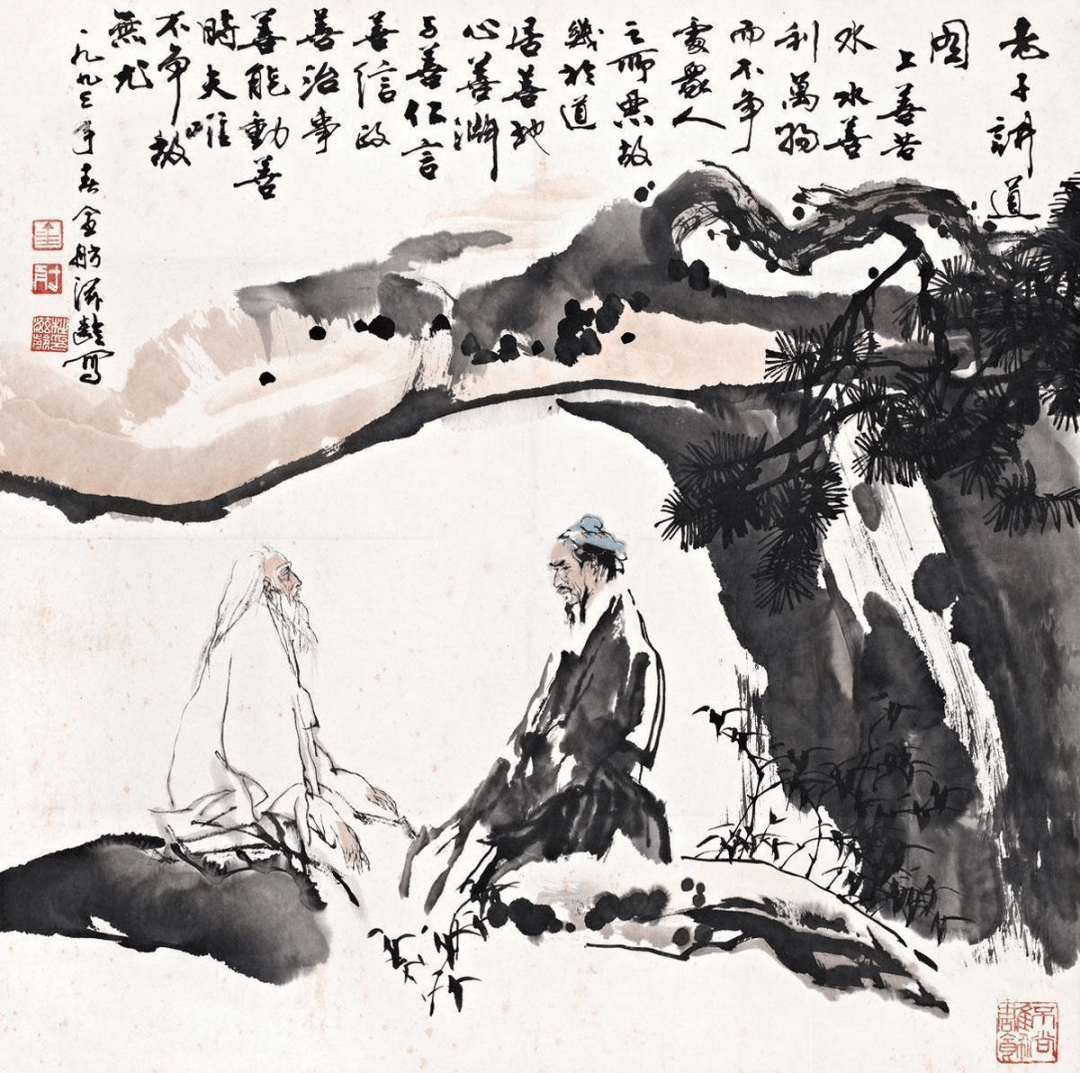 老子讲道
图
上善若
水水善
利萬物
而不争
處衆人
之所恶故
幾於道
居善地
心善渊
与善仁言
善信政
善治事
善能動善
時夫唯
不争故
無尤
一九九三年春金舫滋龄写